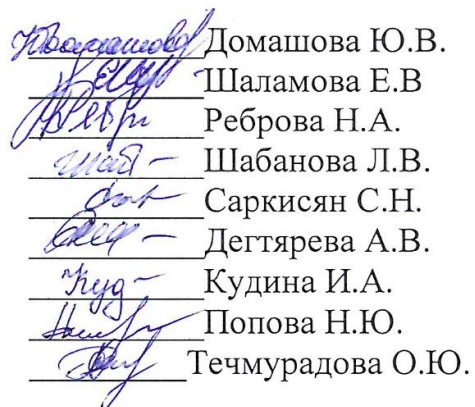 Домашова Ю.В.
Шаламова Е.В
Реброва Н.А.
Шабанова Л.В.
Саркисян С.Н.
Дегтярева А.В.
Кудина И.А.
Попова Н.Ю.
Течмурадова О.Ю.